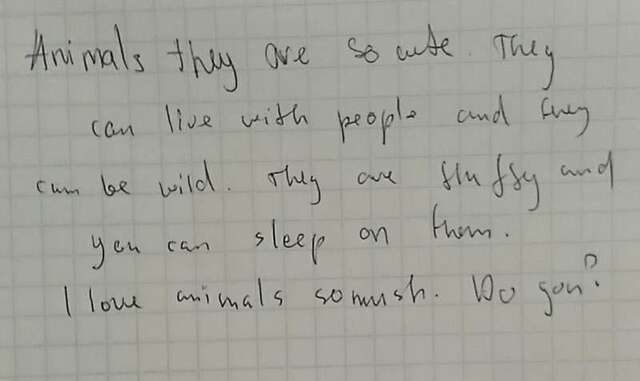 Animals they are so cute. They
can live with people and they
can be wild. They are fluffy and
you can sleep on them.
I love animals so mush. Do you?